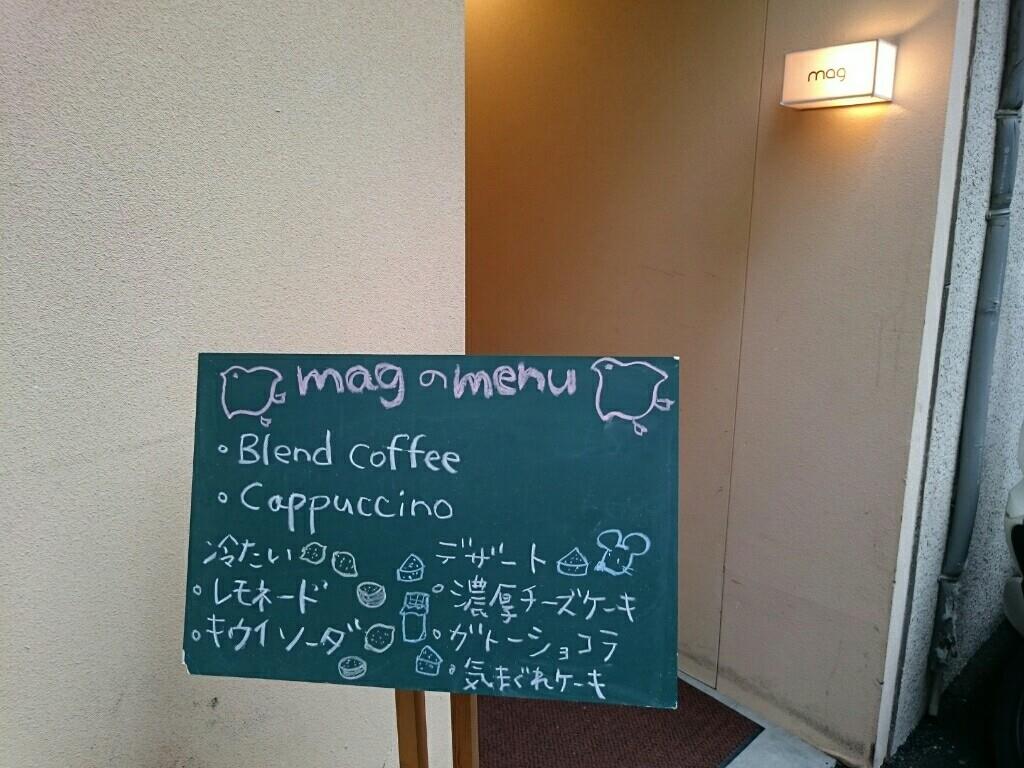 mag
mag の menu
・Blend coffee
・Cappuccino
冷たい
・レモネード
・キウイソーダ
デザート
・濃厚チーズケーキ
・ガトーショコラ
・気まぐれケーキ